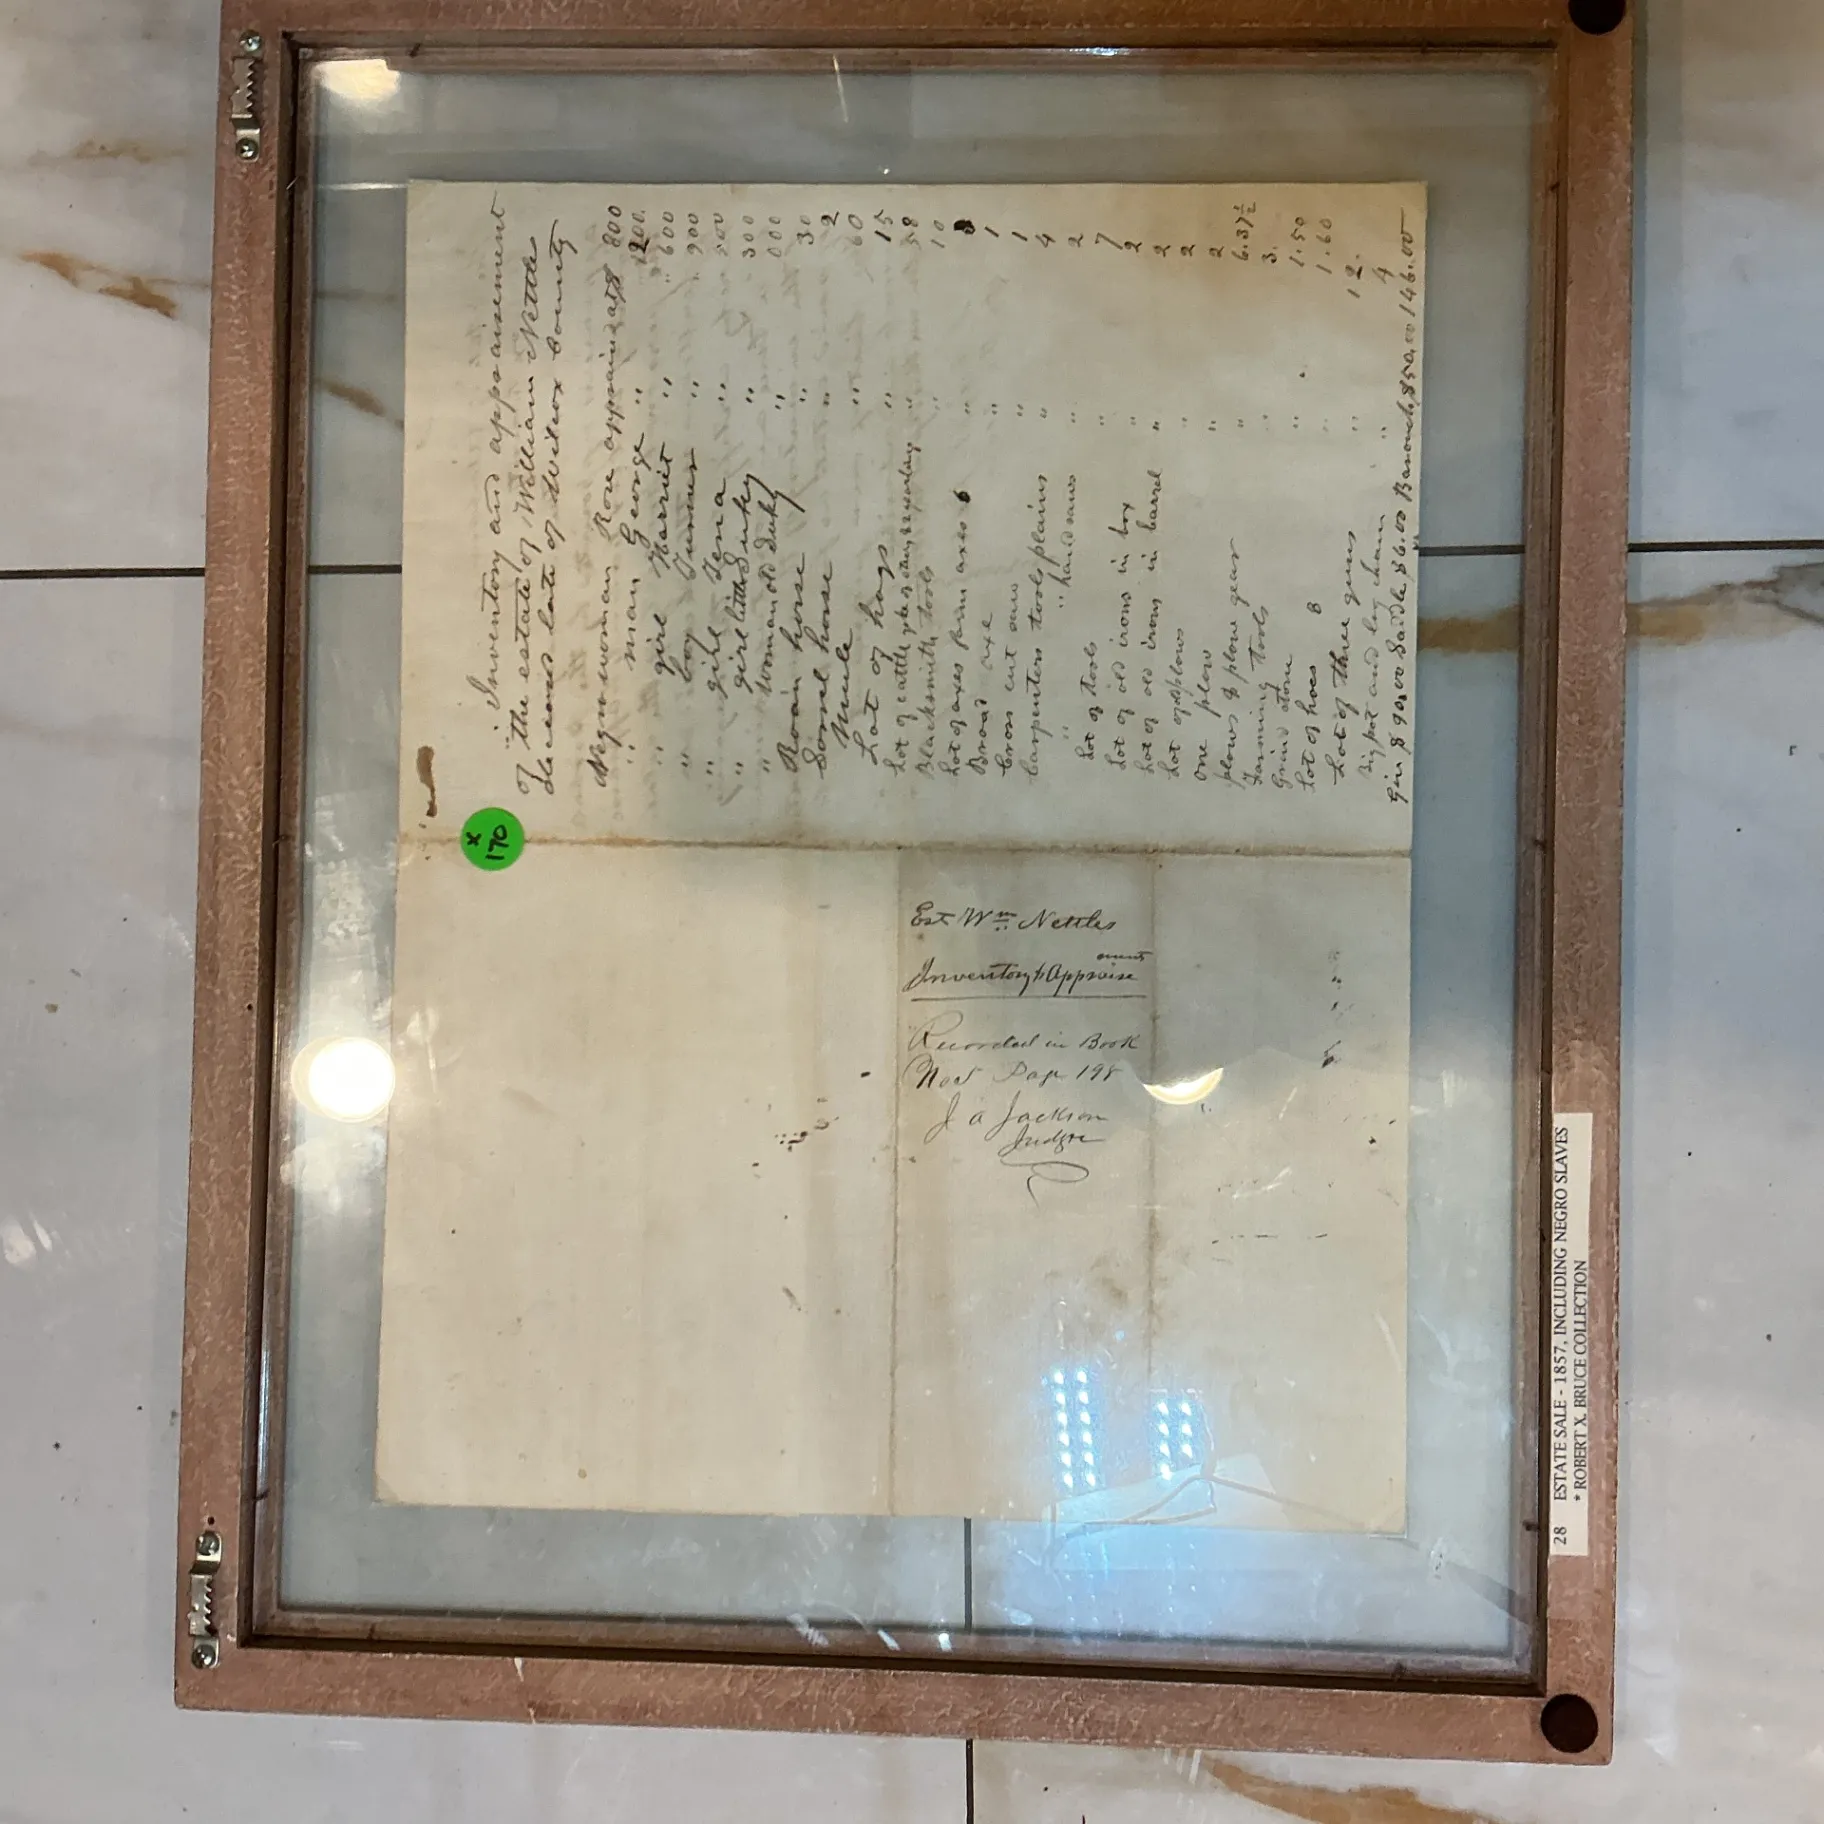 Inventory and appraisement
of the estate of William Nettles
deceased late of Wilcox County
Negro woman Rose appraised at 800
" man George " 1200.
" girl Harriet " " 600
" boy " " 900
" girl Tena "
" girl little Suky " 300
" woman old Suky " 000
Roan horse " 30
Sorrel horse " 2
Mule " 60
Lot of hogs " 15
Lot of cattle " 58
Blacksmith tools " 10
Lot of axes axes 6 "
Broad axe " 1
Cross cut saw " 1
Carpenters tools plains " 4
" " hand saws " 2
Lot of tools " 7
Lot of old irons in box " 2
Lot of old irons in barrel " 2
Lot of plows " 2
One plow " 2
plows & plow gear " 6.37½
Farming tools " 3.
Grind stone " 1.50
Lot of hoes 8 " 1.60
Lot of three guns " 12.
Big pot and log chain " 4
Gin $90.00 Saddle $6.00 $50.00 146.00
X
170
Est Wm Nettles
Inventory & Appraisement
Recorded in Book
Page 198
J A Jackson
Judge
28 ESTATE SALE - 1857, INCLUDING NEGRO SLAVES
* ROBERT X. BRUCE COLLECTION